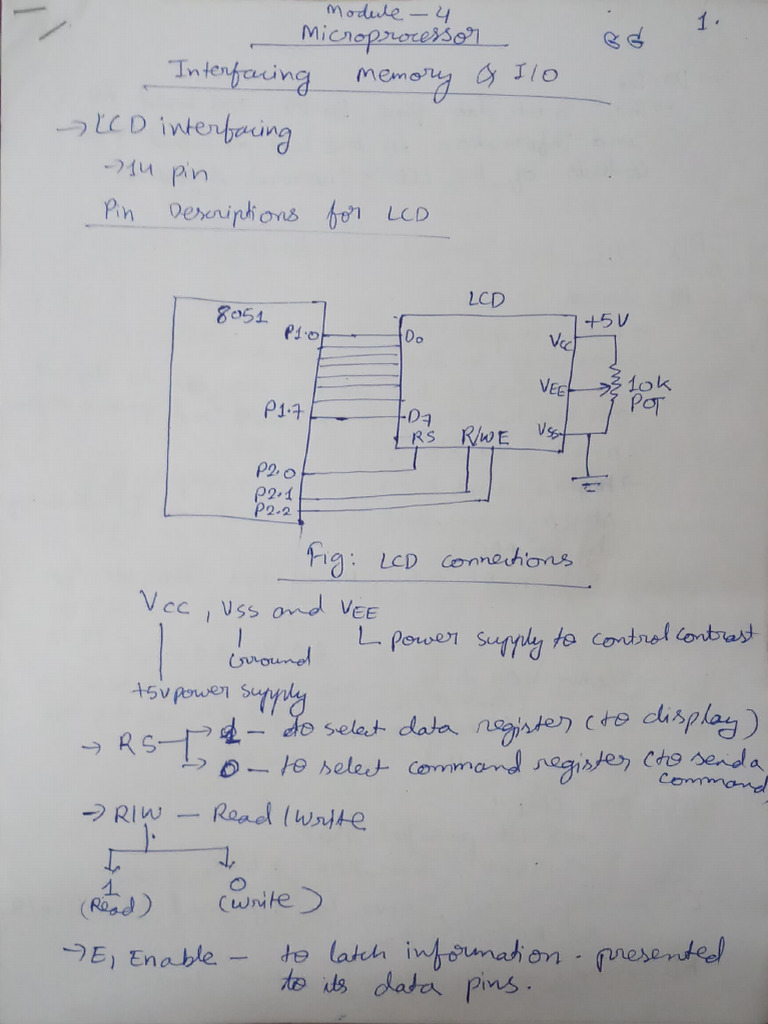 Module - 4
1.
Microprocessor
Interfacing Memory & I/O
→ LCD interfacing
→ 14 pin
Pin Descriptions for LCD
LCD
8051
+5V
P1.0
D0
VCC
VEE
10K
POT
P1.7
D7
VSS
RS R/W E
P2.0
P2.1
P2.2
Fig: LCD connections
VCC, VSS and VEE
power supply to control contrast
Ground
+5V power supply
→ RS → 1 - to select data register (to display)
→ 0 - to select command register (to send a
command)
→ R/W - Read/Write
1 0
(Read) (write)
→ E, Enable - to latch information presented
to its data pins.